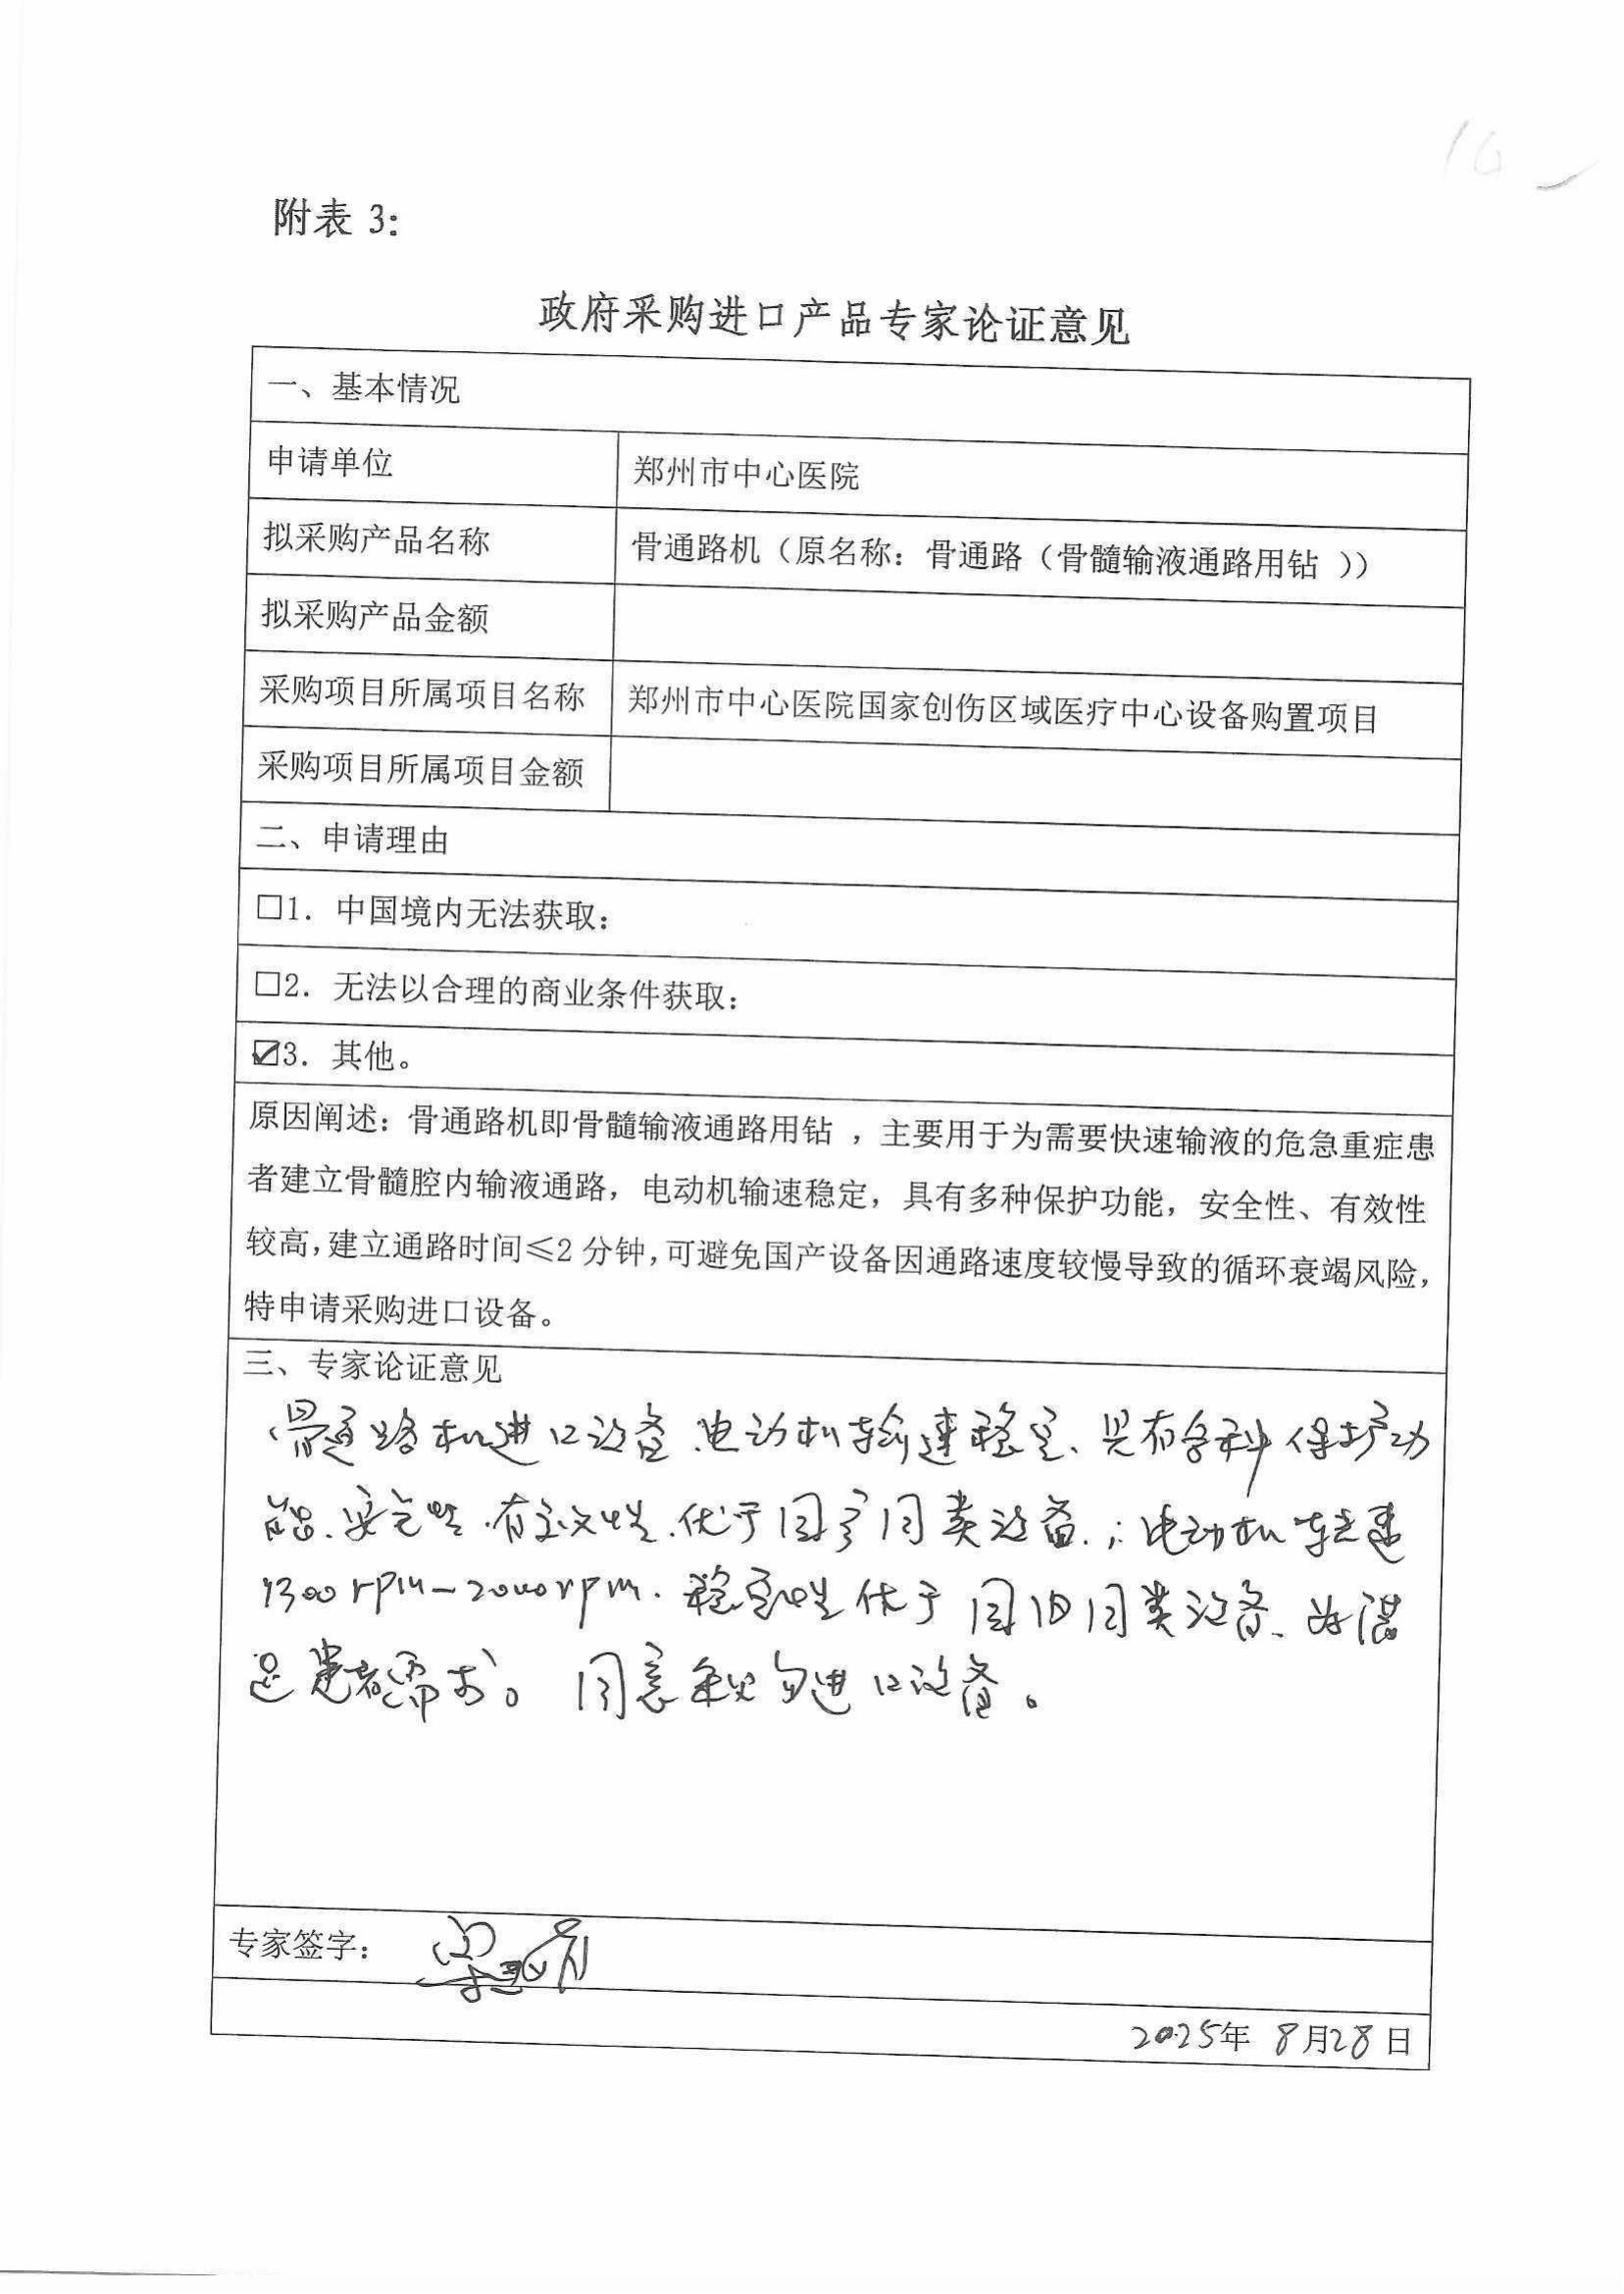 附表 3:
政府采购进口产品专家论证意见
一、基本情况
申请单位 郑州市中心医院
拟采购产品名称 骨通路机（原名称：骨通路（骨髓输液通路用钻 ））
拟采购产品金额
采购项目所属项目名称 郑州市中心医院国家创伤区域医疗中心设备购置项目
采购项目所属项目金额
二、申请理由
□1. 中国境内无法获取：
□2. 无法以合理的商业条件获取：
☑3. 其他。
原因阐述：骨通路机即骨髓输液通路用钻 ，主要用于为需要快速输液的危急重症患
者建立骨髓腔内输液通路，电动机输速稳定，具有多种保护功能，安全性、有效性
较高，建立通路时间≤2 分钟，可避免国产设备因通路速度较慢导致的循环衰竭风险，
特申请采购进口设备。
三、专家论证意见
骨通路机进口设备、电动机输速稳定、具有多种保护功
能、安全性、有效性、优于国产同类设备；电动机转速
1300rpm-2000rpm. 稳定性优于国内同类设备、满
足患者需求。同意采购进口设备。
专家签字：
2025年 8月28日